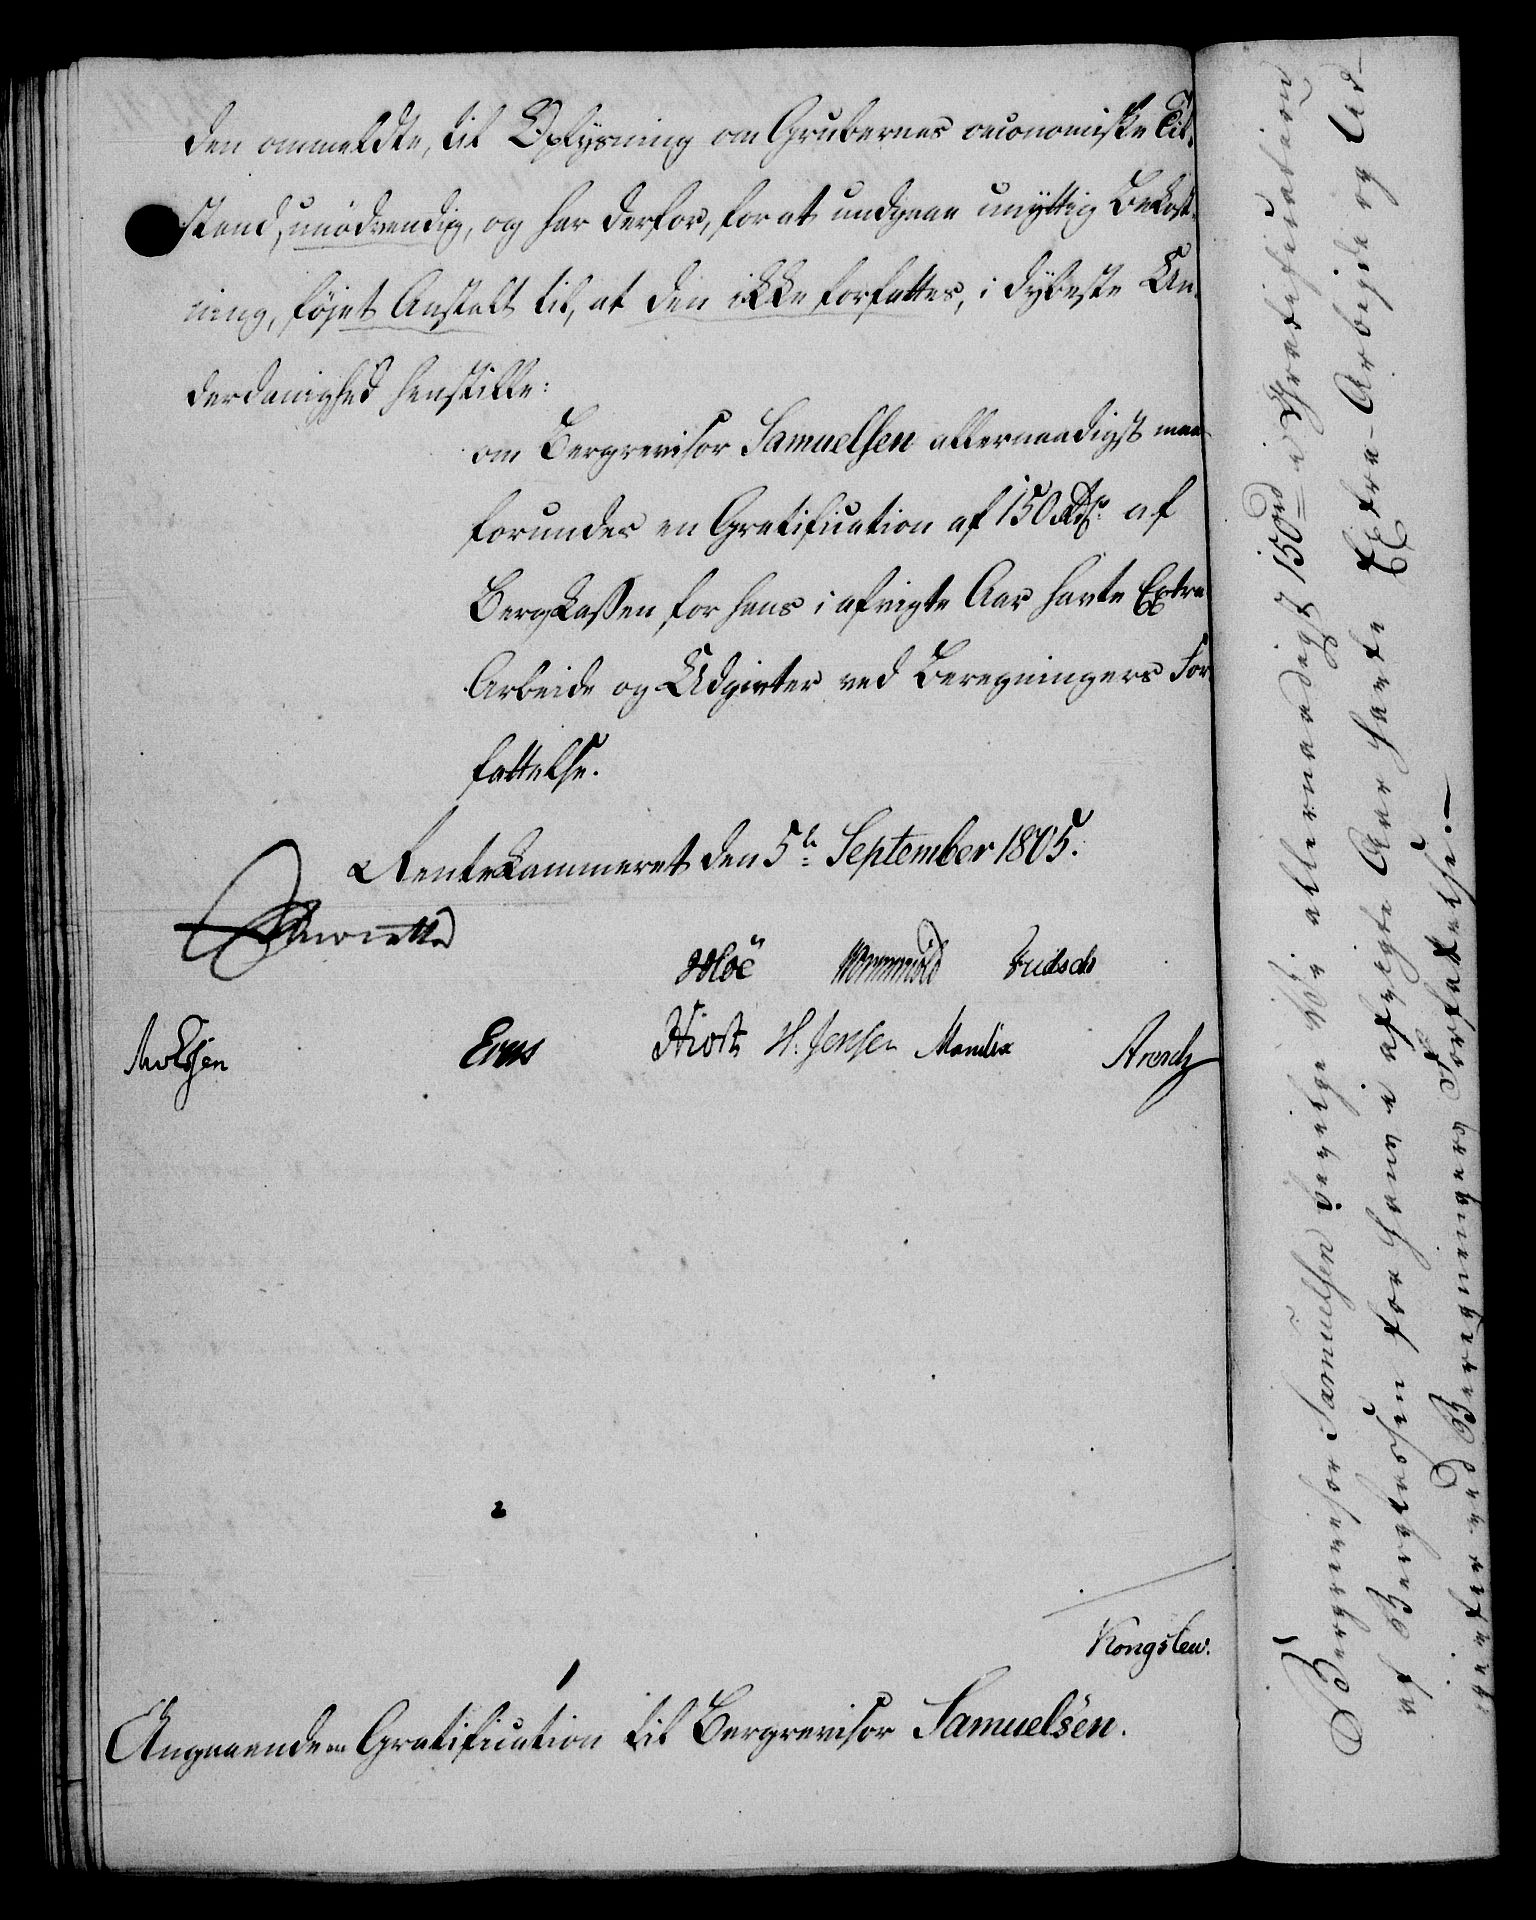 den ommeldte, til Oplysning om Grubernes oeconomiske Til-
stand, unödvendig, og har derfor, for at undgaae unyttig Bekost-
ning, föjet Anstalt til, at den ikke forfattes, i dybeste Un-
derdanighed henstille:
om Bergrevisor Samuelsen allernaadigst maae
forundes en Gratification af 150 Rdlr. af
Bergkassen for hans i afvigte Aar havte Extra
Arbeide og Udgivter ved Beregningers For-
fattelse.
Rentekammeret den 5te September 1805.
Hoë Wormskiold Fridsch
Knudsen Eeus Hiort H. Jensen Manthe Arench
Kongslew.
Angaaende en Gratification til Bergrevisor Samuelsen.
Bergrevisor Samuelsen bevilge Vi allernaadigst 150 rd i Gratification
af Bergkassen for hans i afvigte Aar havte Extra-Arbejde og Ud-
givter ved Beregningers Forfattelse.—